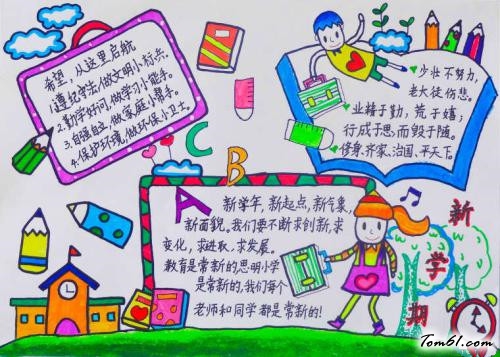 希望，从这里启航
1.遵纪守法，做文明小标兵。
2.勤学好问，做学习小能手。
3.自强自立，做家庭小帮手。
4.保护环境，做环保小卫士。
少壮不努力，
老大徒伤悲。
业精于勤，荒于嬉；
行成于思，而毁于随。
修身、齐家、治国、平天下。
C
B
A
新学年，新起点，新气象，
新面貌，我们要不断求创新，求
变化，求进取，求发展。
教育是常新的思明小学
是常新的，我们每个
老师和同学都是常新的！
新
学
期
Tom61.com